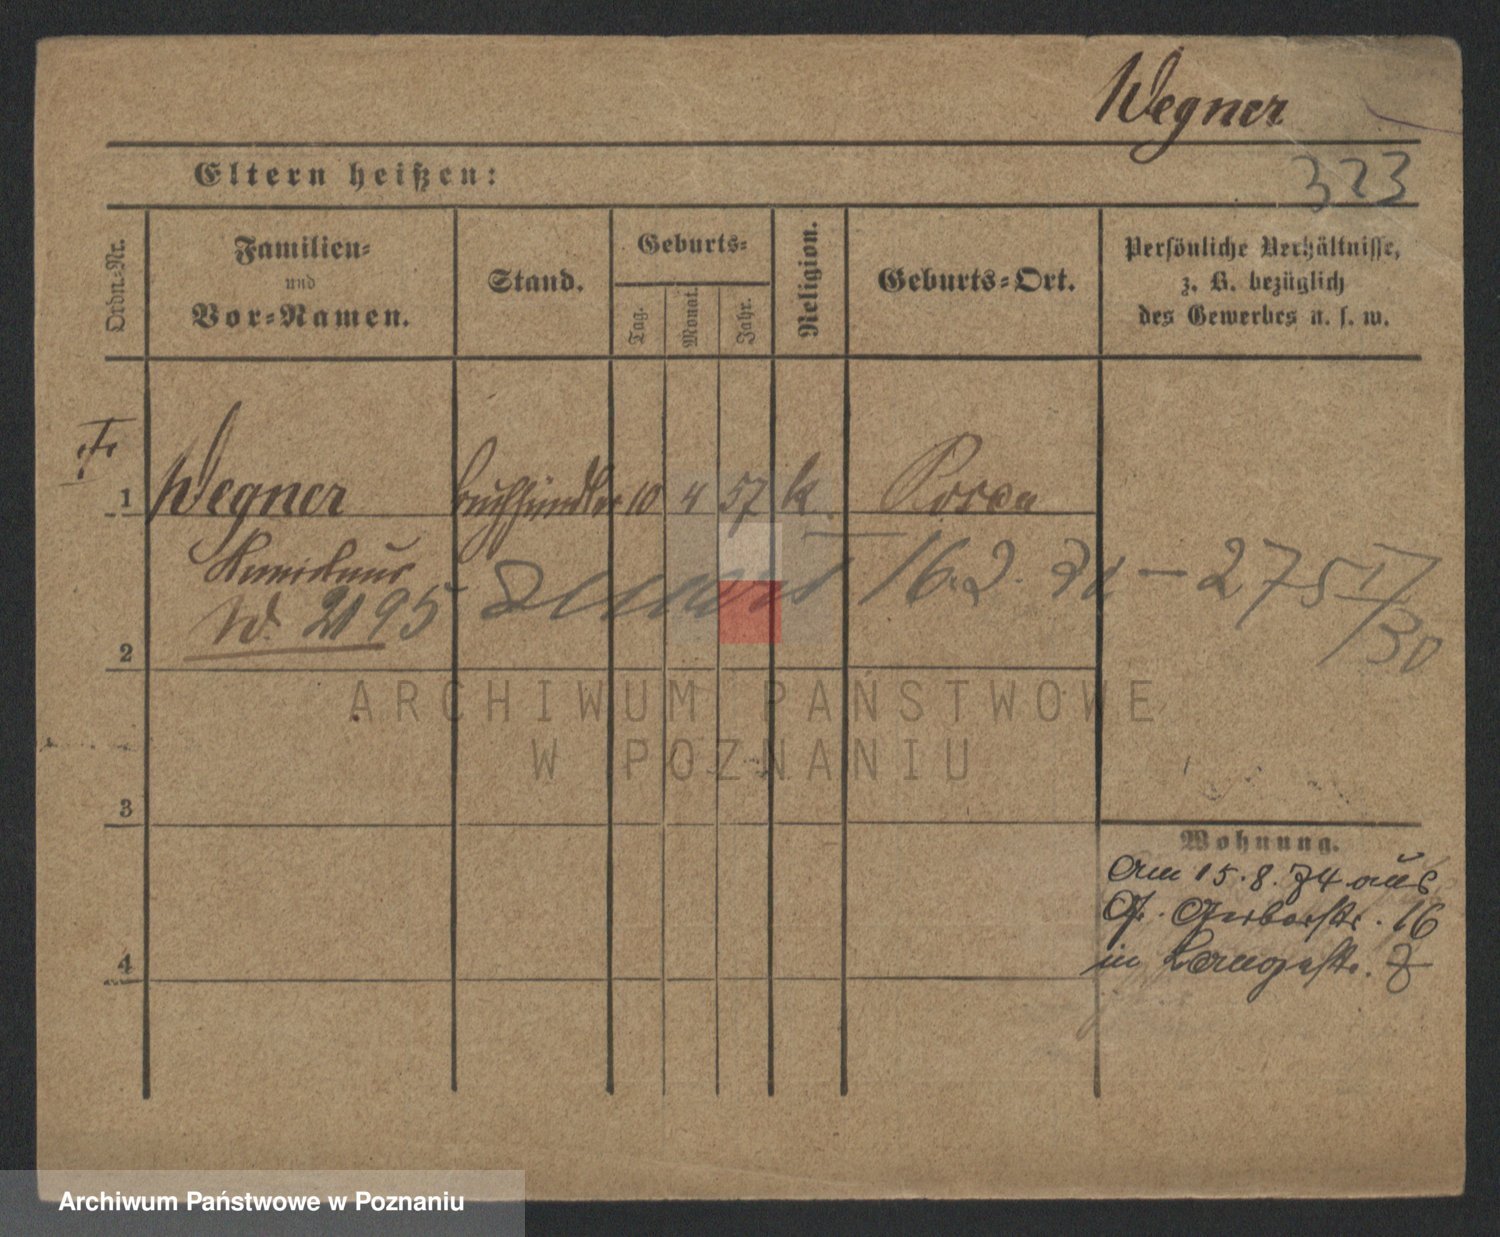 Wegner
323
Eltern heißen:
Ordn.-Nr.
Familien-
und
Vor-Namen.
Stand.
Geburts-
Tag.
Monat.
Jahr.
Religion.
Geburts-Ort.
Persönliche Verhältnisse,
z. B. bezüglich
des Gewerbes u. s. w.
1 Wegner 10 4 57 k. Posen
16.2.
W. 2195
2
30
ARCHIWUM PAŃSTWOWE
W POZNANIU
3
Wohnung.
Am 15.8.74 aus
Gr. Gerberstr. 16
in Langestr. 7
4
Archiwum Państwowe w Poznaniu